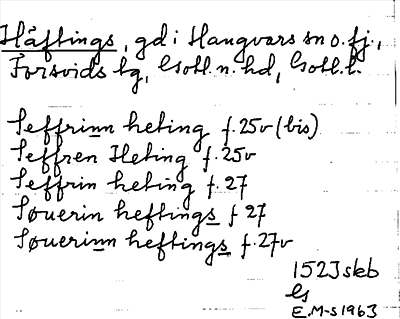 Häftings, gd i Hangvars sn o. fj.,
Forsvids tg, Gotl. n. hd, Gotl. l.
Seffrinn heting f. 25v (bis)
Seffren Heting f. 25v
Seffrin heting f. 27
Søuerin heftings f 27
Søuerinn heftings f. 27v
1523 skb
Gs
E.M-s 1963